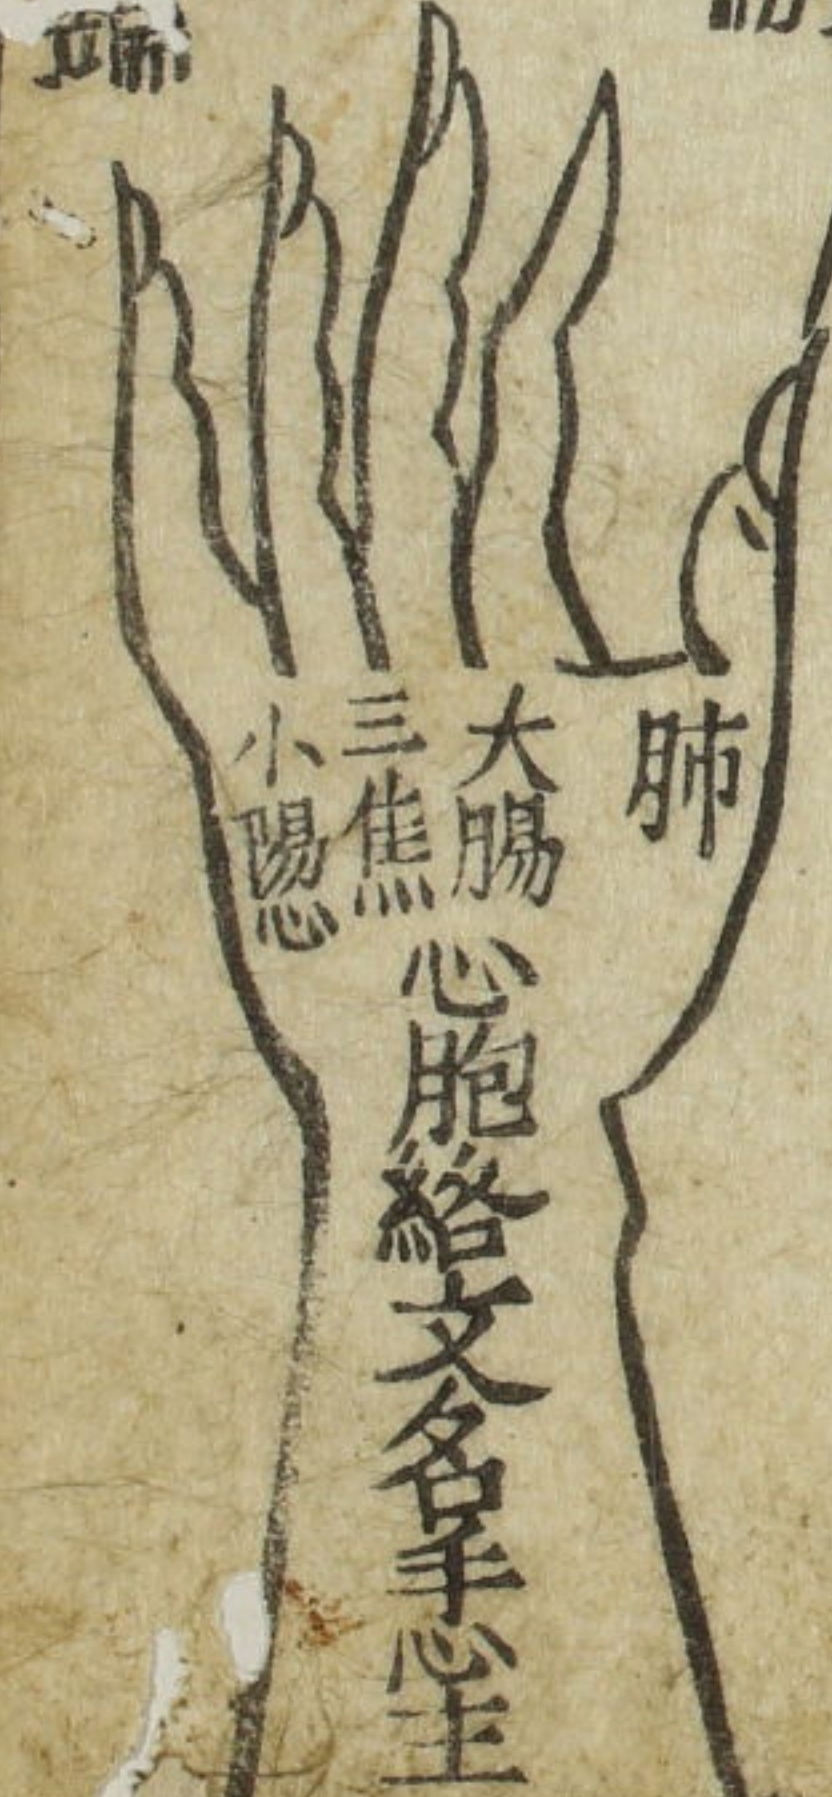 肺
大腸
三焦
小陽心
心胞絡文名手心主